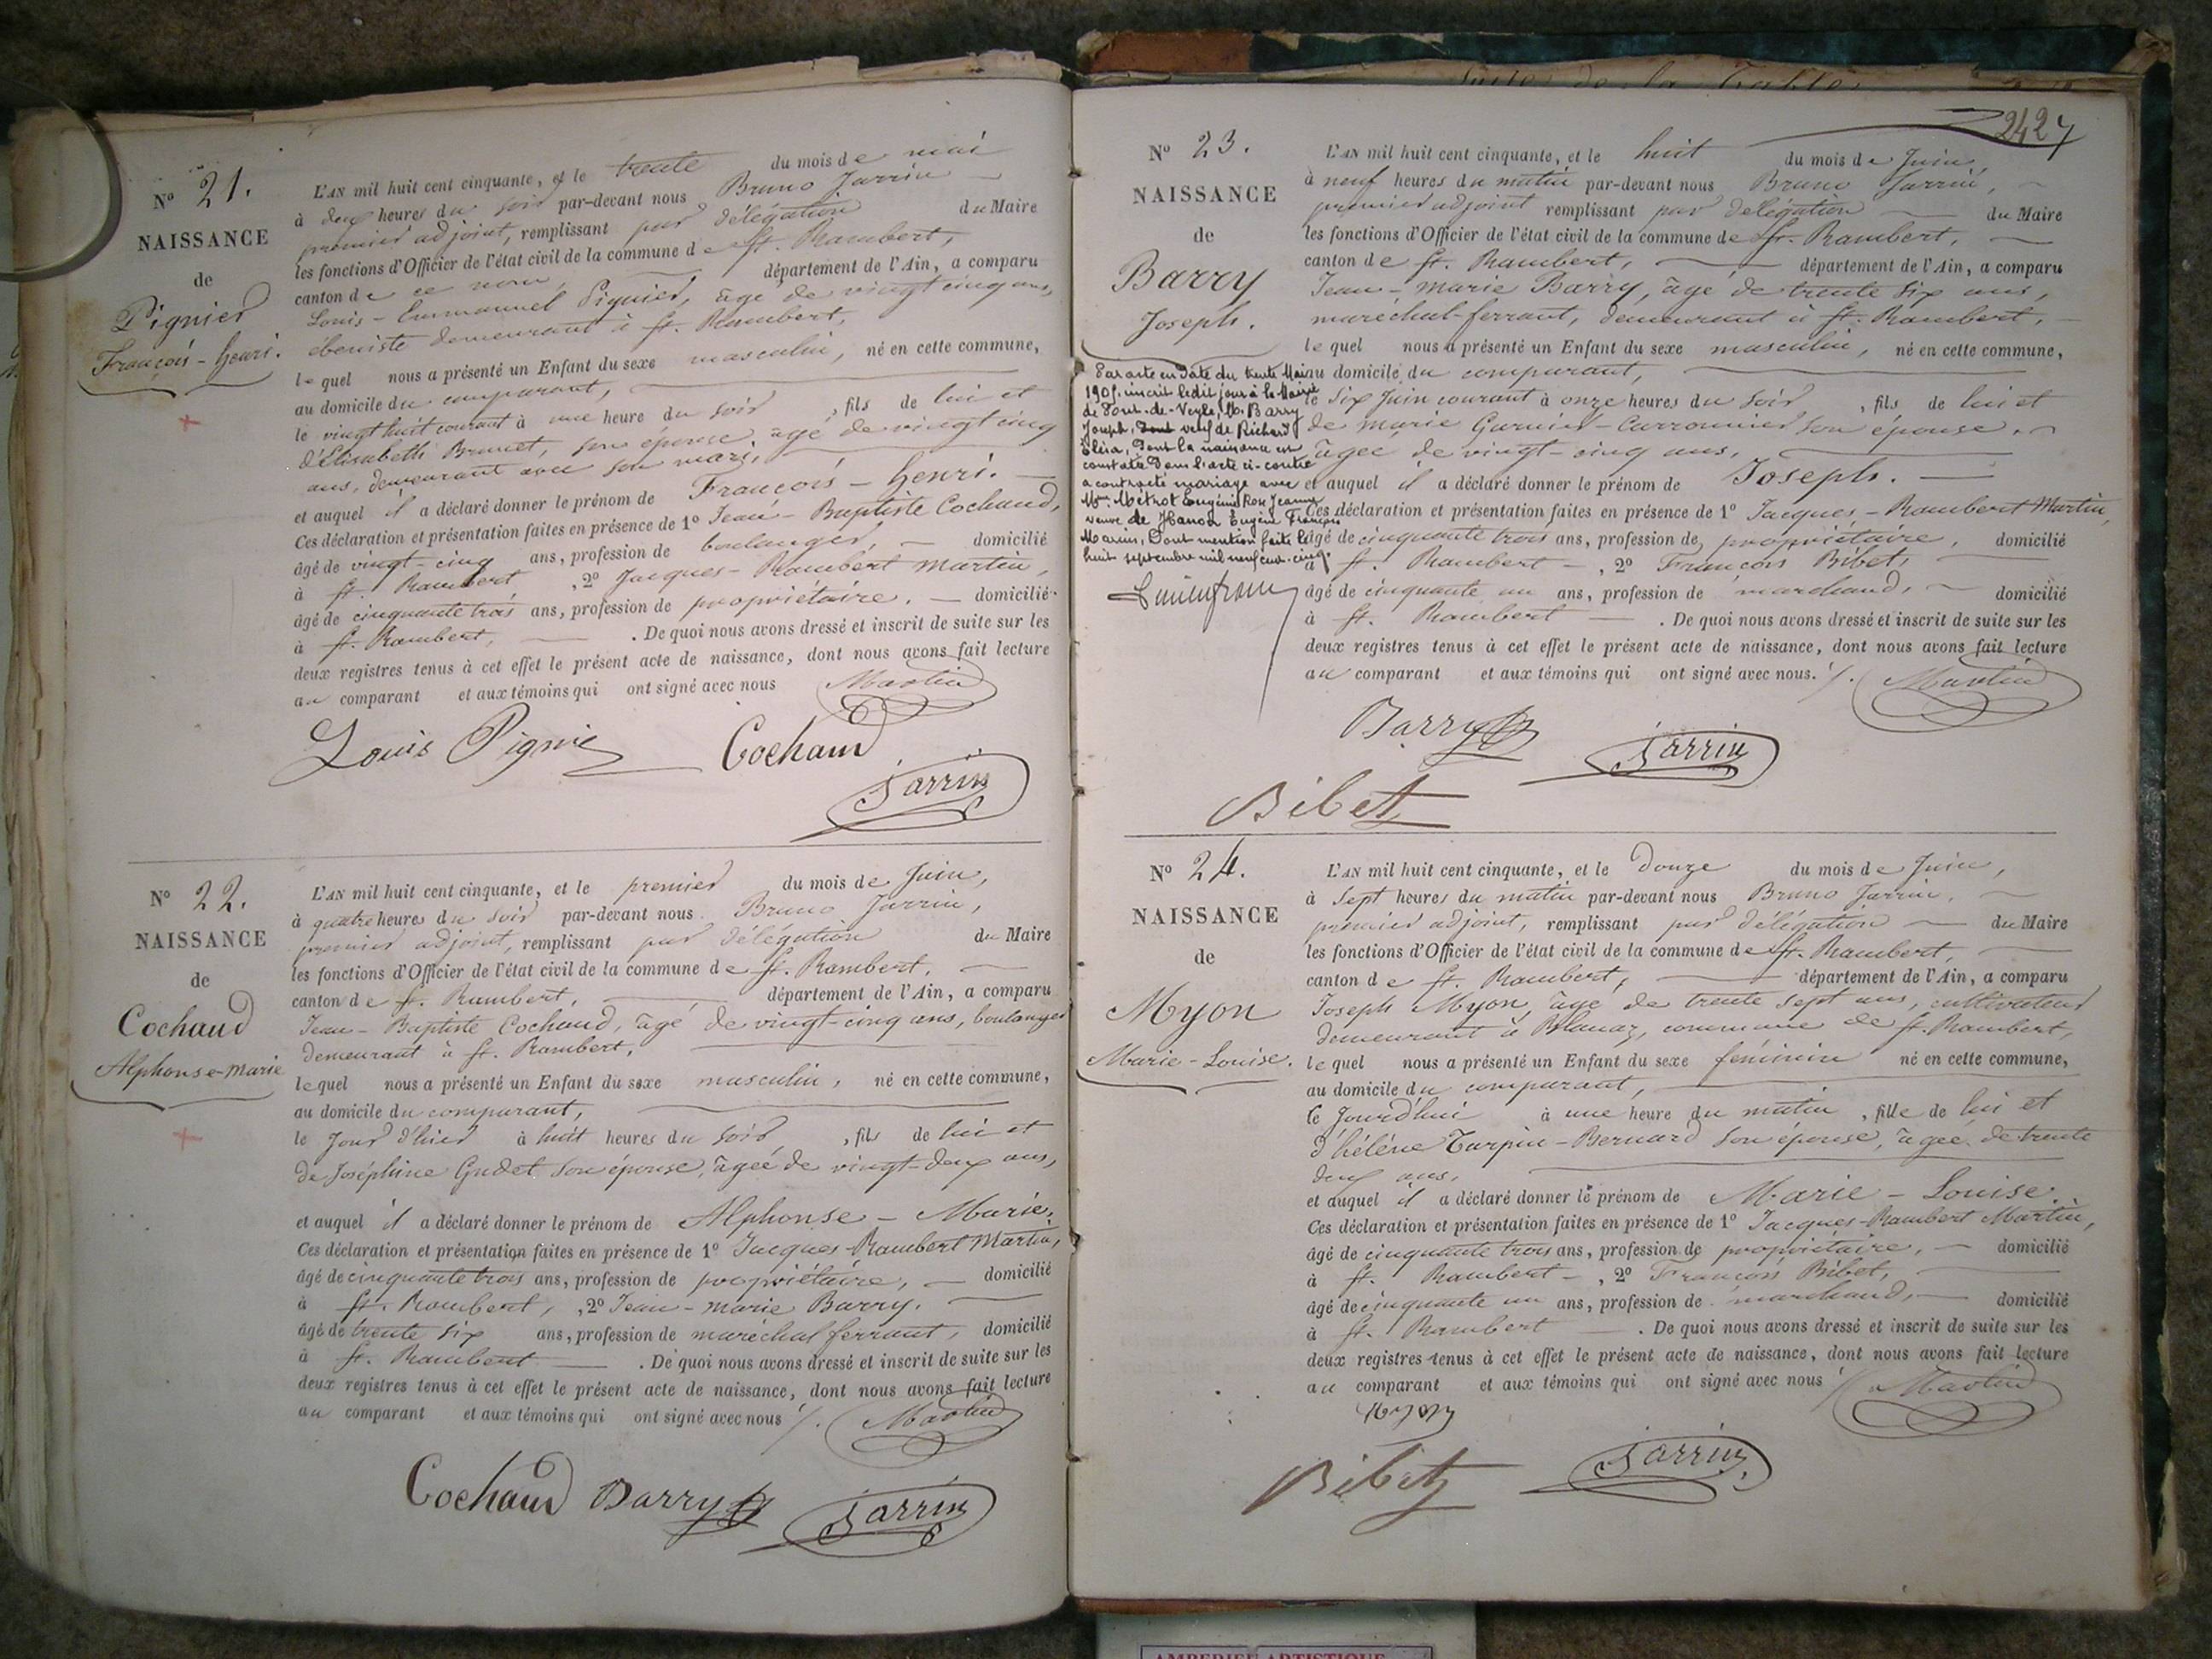 N° 21.
NAISSANCE
de
Pignier
François-henri.
L'AN mil huit cent cinquante, et le trente du mois de mai
à deux heures du soir par-devant nous Bruno Jarrin
premier adjoint, remplissant par délégation du Maire
les fonctions d'Officier de l'état civil de la commune de St. Rambert,
canton de ce nom, département de l'Ain, a comparu
Louis-Emmanuel Pignier, âgé de vingt cinq ans,
ébeniste demeurant à St. Rambert,
lequel nous a présenté un Enfant du sexe masculin, né en cette commune,
au domicile du comparant,
le vingt huit courant à une heure du soir, fils de lui et
d'Elisabeth Brunet, son épouse agé de vingt cinq
ans, demeurant avec son mari,
et auquel il a déclaré donner le prénom de François-henri.
Ces déclaration et présentation faites en présence de 1° Jean-Baptiste Cochaud,
âgé de vingt-cinq ans, profession de boulanger, domicilié
à St. Rambert, 2° Jacques-Rambert Martin,
âgé de cinquante trois ans, profession de propriétaire. domicilié
à St. Rambert, . De quoi nous avons dressé et inscrit de suite sur les
deux registres tenus à cet effet le présent acte de naissance, dont nous avons fait lecture
au comparant et aux témoins qui ont signé avec nous Martin
Louis Pignie Cochaud
Jarrin
N° 22.
NAISSANCE
de
Cochaud
Alphonse-marie
L'AN mil huit cent cinquante, et le premier du mois de Juin,
à quatre heures du soir par-devant nous Bruno Jarrin,
premier adjoint, remplissant par délégation du Maire
les fonctions d'Officier de l'état civil de la commune de St. Rambert,
canton de St. Rambert, département de l'Ain, a comparu
Jean-Baptiste Cochaud, âgé de vingt-cinq ans, boulanger
demeurant à St. Rambert,
lequel nous a présenté un Enfant du sexe masculin, né en cette commune,
au domicile du comparant,
le Jour d'hier à huit heures du soir, fils de lui et
de Joséphine Gudet, son épouse, âgée de vingt-deux ans,
et auquel il a déclaré donner le prénom de Alphonse-Marie,
Ces déclaration et présentation faites en présence de 1° Jacques-Rambert Martin,
âgé de cinquante trois ans, profession de propriétaire, domicilié
à St. Rambert, , 2° Jean-marie Barry.
âgé de trente six ans, profession de maréchal ferrant, domicilié
à St. Rambert . De quoi nous avons dressé et inscrit de suite sur les
deux registres tenus à cet effet le présent acte de naissance, dont nous avons fait lecture
au comparant et aux témoins qui ont signé avec nous /. Martin
Cochaud Barry Jarrin
Suite de la Table
N° 23.
NAISSANCE
de
Barry
Joseph.
Par acte en date du trente Mai
1905, inscrit ledit jour à la Mairie
de Pont-de-Veyle, M. Barry
Joseph, veuf de Richard
Eléia, dont la naissance est
constatée dans l'acte ci-contre
a contracté mariage avec
Mme Métrot Eugénie Rose Jeanne
veuve de Hanon Eugène François
Marius, Dont mention faite le
huit septembre mil neuf cent-cinq.
L'AN mil huit cent cinquante, et le huit du mois de Juin
à neuf heures du matin par-devant nous Bruno Jarrin,
premier adjoint remplissant par délégation du Maire
les fonctions d'Officier de l'état civil de la commune de St. Rambert,
canton de St. Rambert, département de l'Ain, a comparu
Jean-marie Barry, âgé de trente six ans,
maréchal-ferrant, demeurant à St. Rambert,
lequel nous a présenté un Enfant du sexe masculin, né en cette commune,
au domicile du comparant,
le six Juin courant à onze heures du soir, fils de lui et
de marie Garnier-Carronnier son épouse,
âgée de vingt-cinq ans,
et auquel il a déclaré donner le prénom de Joseph.
Ces déclaration et présentation faites en présence de 1° Jacques-Rambert Martin,
âgé de cinquante trois ans, profession de propriétaire, domicilié
à St. Rambert, 2° François Bibet,
âgé de cinquante un ans, profession de marchand, domicilié
à St. Rambert . De quoi nous avons dressé et inscrit de suite sur les
deux registres tenus à cet effet le présent acte de naissance, dont nous avons fait lecture
au comparant et aux témoins qui ont signé avec nous. /. Martin
Barry Jarrin
Bibet
N° 24.
NAISSANCE
de
Myon
Marie-Louise.
L'AN mil huit cent cinquante, et le Douze du mois de Juin,
à Sept heures du matin par-devant nous Bruno Jarrin,
premier adjoint, remplissant par délégation du Maire
les fonctions d'Officier de l'état civil de la commune de St. Rambert,
canton de St. Rambert, département de l'Ain, a comparu
Joseph Myon, âgé de trente sept ans, cultivateur
demeurant à Blanaz, commune de St. Rambert,
lequel nous a présenté un Enfant du sexe féminin né en cette commune,
au domicile du comparant,
le Jourd'hui à une heure du matin, fille de lui et
d'hélène Turpin-Bernard son épouse, âgée de trente
deux ans,
et auquel il a déclaré donner le prénom de Marie-Louise.
Ces déclaration et présentation faites en présence de 1° Jacques-Rambert Martin,
âgé de cinquante trois ans, profession de propriétaire, domicilié
à St. Rambert, 2° François Bibet,
âgé de cinquante un ans, profession de marchand, domicilié
à St. Rambert . De quoi nous avons dressé et inscrit de suite sur les
deux registres tenus à cet effet le présent acte de naissance, dont nous avons fait lecture
au comparant et aux témoins qui ont signé avec nous Martin
Myon
Bibet Jarrin
AMBERIEU ARTISTIQUE